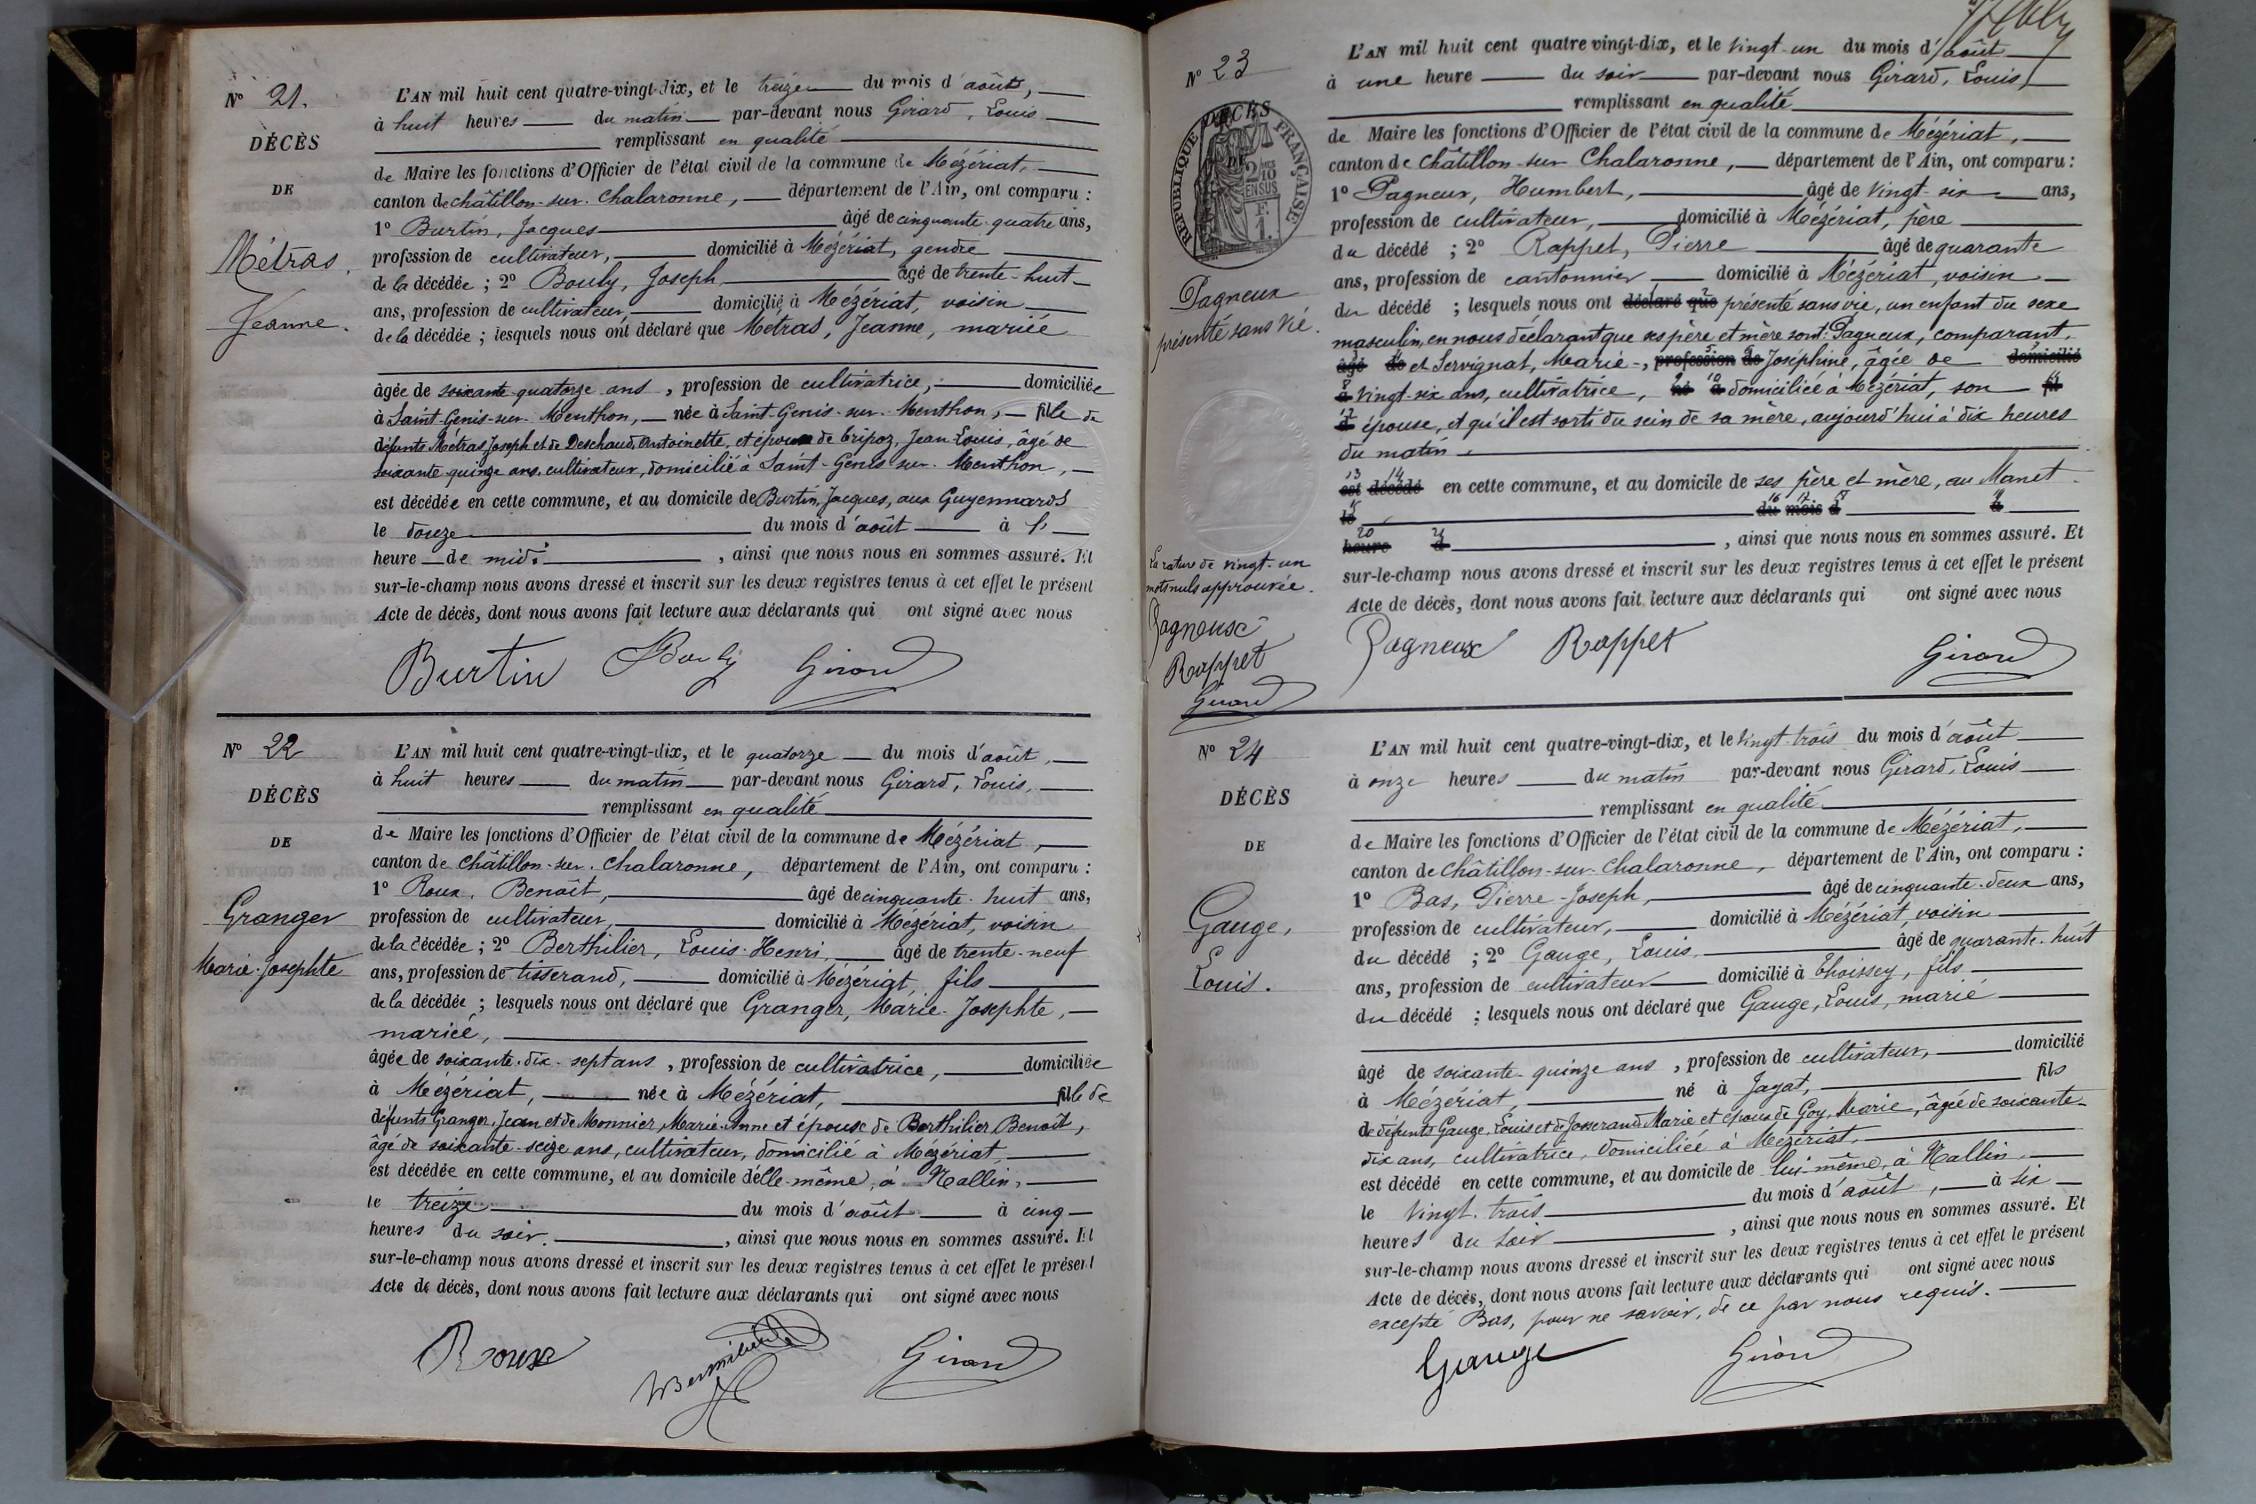 N° 21.
DÉCÈS
DE
Métras,
Jeanne.
L'AN mil huit cent quatre-vingt-dix, et le treize du mois d'août,
à huit heures du matin par-devant nous Girard, Louis
remplissant en qualité
de Maire les fonctions d'Officier de l'état civil de la commune de Mézériat,
canton de châtillon-sur-Chalaronne, département de l'Ain, ont comparu :
1° Burtin, Jacques âgé de cinquante-quatre ans,
profession de cultivateur, domicilié à Mézériat, gendre
de la décédée ; 2° Bouly, Joseph, âgé de trente-huit
ans, profession de cultivateur, domicilié à Mézériat, voisin
de la décédée ; lesquels nous ont déclaré que Métras, Jeanne, mariée
âgée de soixante-quatorze ans, profession de cultivatrice, domiciliée
à Saint-Genis-sur-Menthon, née à Saint-Genis-sur-Menthon, fille de
défunts Métras Joseph et de Deschaud, Antoinette, et épouse de Gripoz, Jean-Louis, âgé de
soixante-quinze ans, cultivateur, domicilié à Saint-Genis-sur-Menthon,
est décédée en cette commune, et au domicile de Burtin, Jacques, aux Guyennards
le douze du mois d'août à l'
heure de midi, ainsi que nous nous en sommes assuré. Et
sur-le-champ nous avons dressé et inscrit sur les deux registres tenus à cet effet le présent
Acte de décès, dont nous avons fait lecture aux déclarants qui ont signé avec nous
Burtin JBouly Girard
N° 22
DÉCÈS
DE
Granger
Marie-Josephte
L'AN mil huit cent quatre-vingt-dix, et le quatorze du mois d'août,
à huit heures du matin par-devant nous Girard, Louis,
remplissant en qualité
de Maire les fonctions d'Officier de l'état civil de la commune de Mézériat,
canton de châtillon-sur-chalaronne, département de l'Ain, ont comparu :
1° Roux, Benoît, âgé de cinquante-huit ans,
profession de cultivateur, domicilié à Mézériat, voisin
de la décédée ; 2° Berthilier, Louis-Henri, âgé de trente-neuf
ans, profession de tisserand, domicilié à Mézériat, fils
de la décédée ; lesquels nous ont déclaré que Granger, Marie-Josephte,
mariée,
âgée de soixante-dix-sept ans, profession de cultivatrice, domiciliée
à Mézériat, née à Mézériat, fille de
défunts Granger, Jean et de Monnier, Marie-Anne et épouse de Berthilier Benoît,
âgé de soixante-seize ans, cultivateur, domicilié à Mézériat,
est décédée en cette commune, et au domicile d'elle-même, à Nallin,
le treize du mois d'août à cinq
heures du soir, ainsi que nous nous en sommes assuré. Et
sur-le-champ nous avons dressé et inscrit sur les deux registres tenus à cet effet le présent
Acte de décès, dont nous avons fait lecture aux déclarants qui ont signé avec nous
Roux Girard
N° 23
RÉPUBLIQUE FRANÇAISE
DÉCÈS
DE
2/10 EN SUS
F. 1.
Pagneux
présenté sans vie.
La rature de vingt-un
mots nuls approuvée.
Pagneux
Rappet
Girard
L'AN mil huit cent quatre vingt-dix, et le vingt-un du mois d'août
à une heure du soir par-devant nous Girard, Louis,
remplissant en qualité
de Maire les fonctions d'Officier de l'état civil de la commune de Mézériat,
canton de châtillon-sur-Chalaronne, département de l'Ain, ont comparu :
1° Pagneux, Humbert, âgé de vingt-six ans,
profession de cultivateur, domicilié à Mézériat, père
du décédé ; 2° Rappet, Pierre âgé de quarante
ans, profession de cantonnier, domicilié à Mézériat, voisin
du décédé ; lesquels nous ont déclaré que présenté sans vie, un enfant du sexe
masculin, en nous déclarant que ses père et mère sont: Pagneux, comparant,
âgé de et Servignat, Marie-, profession de Joséphine, âgée de domicilié
à vingt-six ans, cultivatrice, né à domiciliée à Mézériat, son fil
d épouse, et qu'il est sorti du sein de sa mère, aujourd'hui à dix heures
du matin,
est décédé en cette commune, et au domicile de ses père et mère, au Manet
le du mois d à
heure d, ainsi que nous nous en sommes assuré. Et
sur-le-champ nous avons dressé et inscrit sur les deux registres tenus à cet effet le présent
Acte de décès, dont nous avons fait lecture aux déclarants qui ont signé avec nous
Pagneux Rappet Girard
N° 24
DÉCÈS
DE
Gauge,
Louis.
L'AN mil huit cent quatre-vingt-dix, et le vingt-trois du mois d'août
à onze heures du matin par-devant nous Girard, Louis
remplissant en qualité
de Maire les fonctions d'Officier de l'état civil de la commune de Mézériat,
canton de châtillon-sur-chalaronne, département de l'Ain, ont comparu :
1° Bas, Pierre-Joseph, âgé de cinquante-deux ans,
profession de cultivateur, domicilié à Mézériat, voisin
du décédé ; 2° Gauge, Louis, âgé de quarante-huit
ans, profession de cultivateur domicilié à Thoissey, fils
du décédé ; lesquels nous ont déclaré que Gauge, Louis, marié
âgé de soixante-quinze ans, profession de cultivateur, domicilié
à Mézériat, né à Jayat, fils
de défunts Gauge, Louis et de Josserand Marie et époux de Goy, Marie, âgée de soixante-
dix ans, cultivatrice, domiciliée à Mézériat,
est décédé en cette commune, et au domicile de lui-même, à Nallin,
le vingt-trois du mois d'août, à six
heures du soir, ainsi que nous nous en sommes assuré. Et
sur-le-champ nous avons dressé et inscrit sur les deux registres tenus à cet effet le présent
Acte de décès, dont nous avons fait lecture aux déclarants qui ont signé avec nous
excepté Bas, pour ne savoir, de ce par nous requis.
Gauge Girard